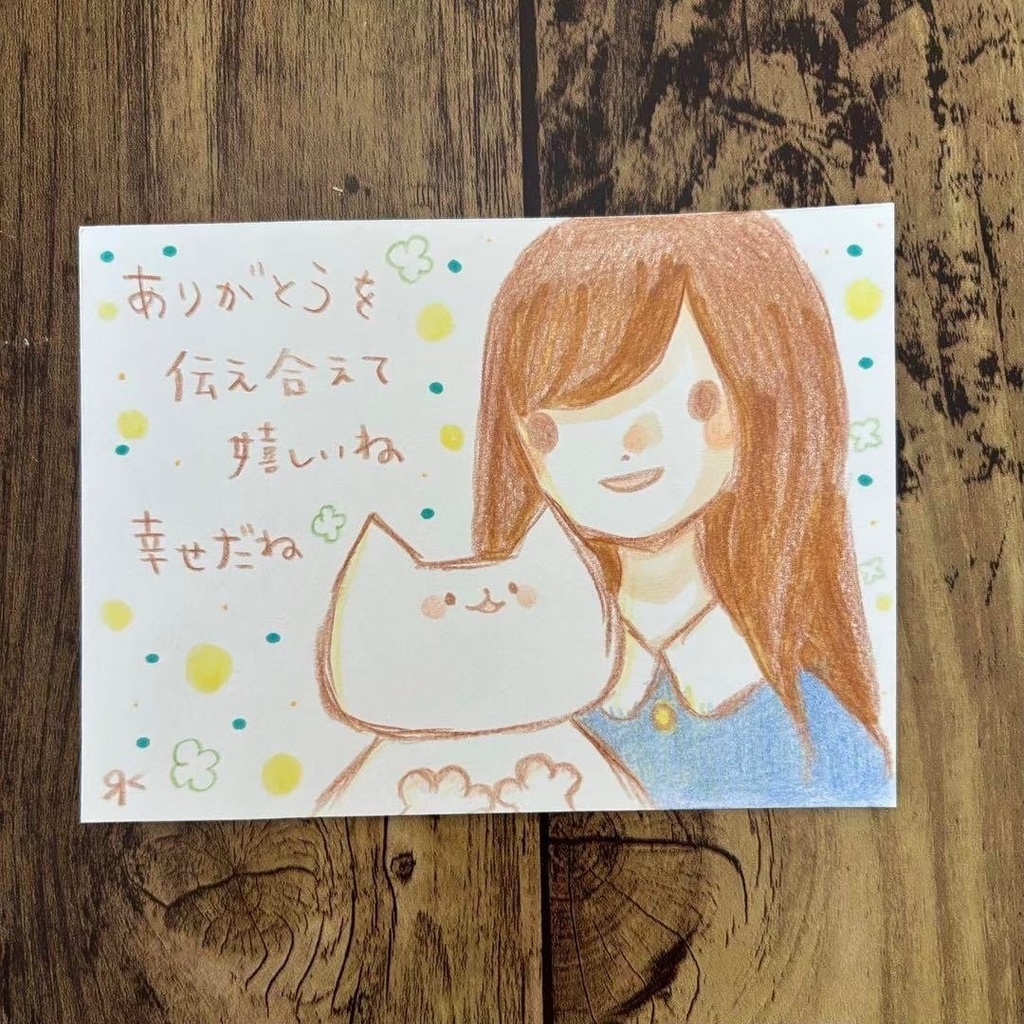 ありがとうを
伝え合えて
嬉しいね
幸せだね